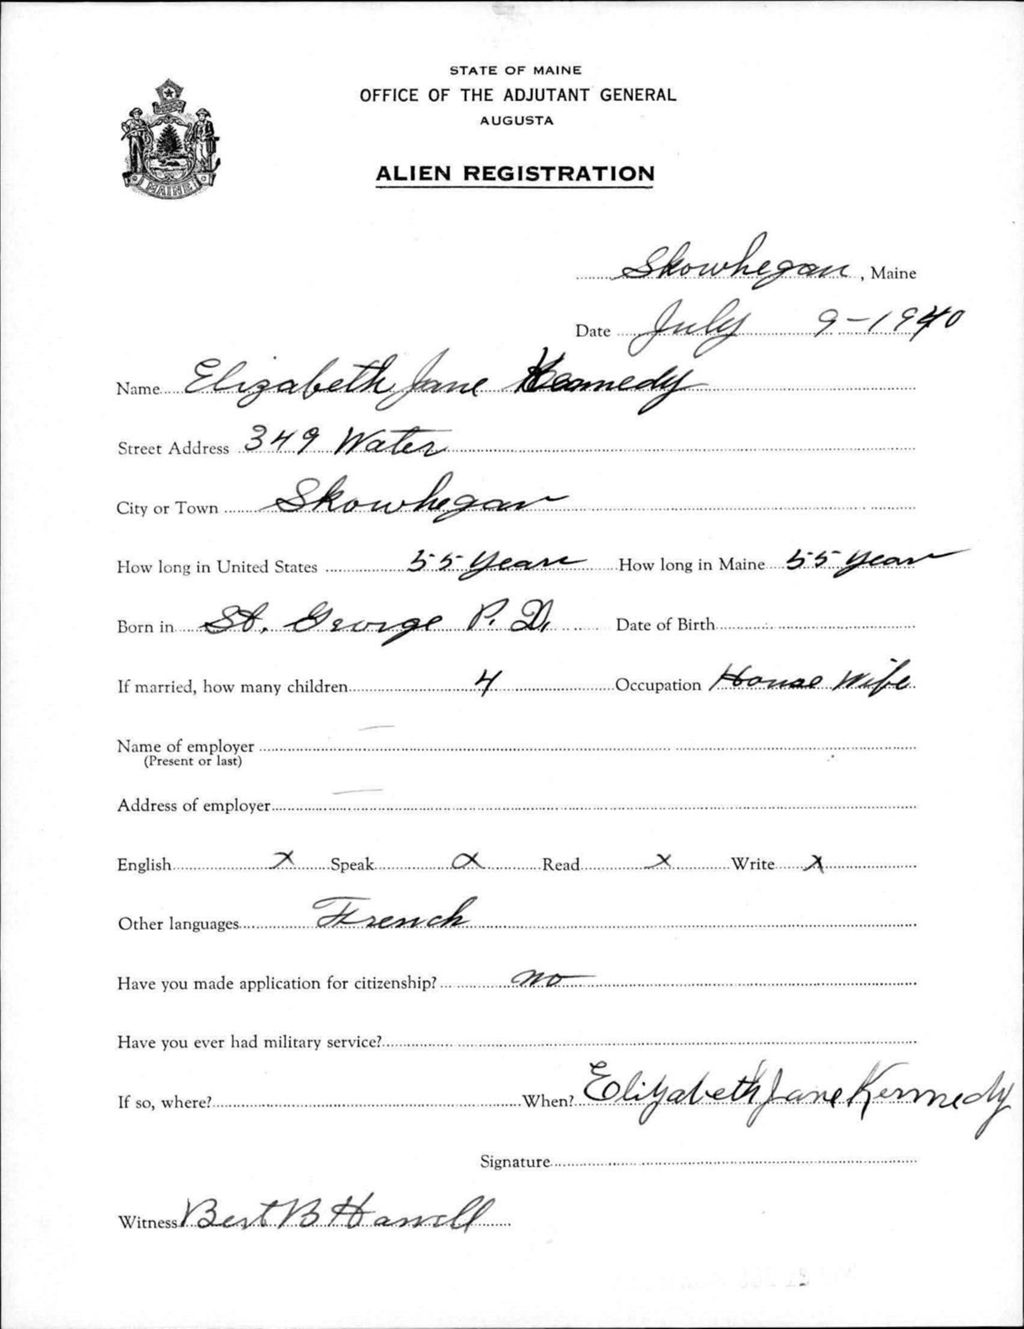 STATE OF MAINE
OFFICE OF THE ADJUTANT GENERAL
AUGUSTA
ALIEN REGISTRATION
MAINE
Skowhegan, Maine
Date July 9-1940
Name Elizabeth Jane Kennedy
Street Address 349 Water
City or Town Skowhegan
How long in United States 55 years How long in Maine 55 year
Born in St. George P. Q. Date of Birth
If married, how many children 4 Occupation House Wife
Name of employer
(Present or last)
Address of employer
English X Speak X Read X Write X
Other languages French
Have you made application for citizenship? no
Have you ever had military service?
If so, where? When? Elizabeth Jane Kennedy
Signature
Witness Bert B